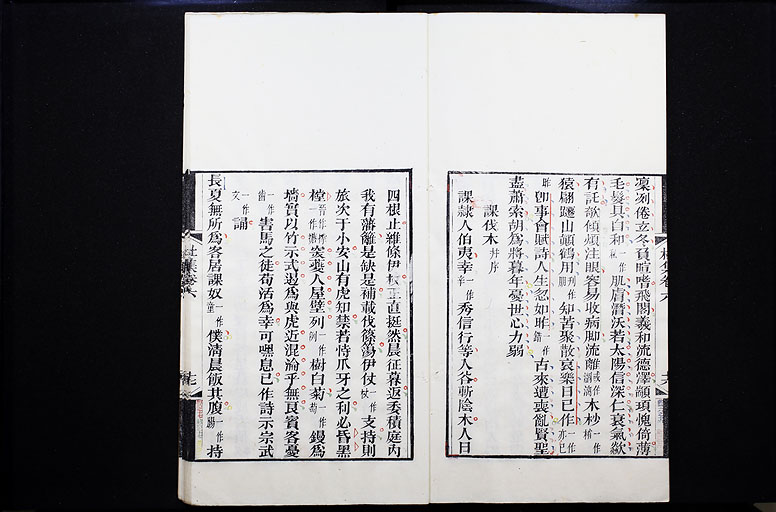 凜冽倦玄冬負暄嗜飛閣羲和流德澤顓頊愧倚薄
毛髮具自和一作私肌膚潛沃若太陽信深仁衰氣歘
有託欹傾煩注眼容易收病脚流離或作瀏灕木杪一作梢
猿翩躚山顛鶴用知苦聚散哀樂日已作一作亦已
昨卽事會賦詩人生忽如昨一作錯古來遭喪亂賢聖
盡蕭索胡爲將暮年憂世心力弱
課伐木幷序
課隸人伯夷幸一作辛秀信行等人谷斬陰木人日
四根止維條伊枚正直挺然晨征暮返委積庭內
我有藩籬是缺是補載伐篠簜伊仗一作杖支持則
旅次于小安山有虎知禁若恃爪牙之利必昏黑
突夔人屋壁列一作例樹白菊一作萄鏝爲
墻實以竹示式遏爲與虎近混淪乎無良賓客憂
一作害馬之徒苟活爲幸可嘿息已作詩示宗武
一作文誦
長夏無所爲客居課奴一作童僕淸晨飯其腹一作腸持
杜集卷六